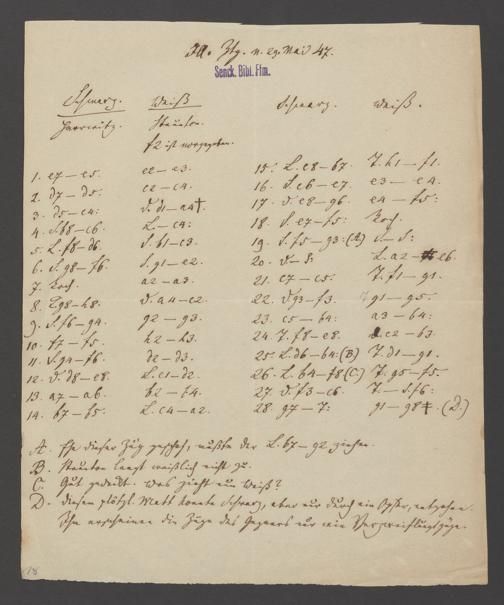 Ztg. v. 29. Mai 47.
Senck. Bibl. Ffm.
Schwarz. Weiß Schwarz. Weiß.
Harrwitz. Staunton.
f2 ist vorgegeben.
1. e7 – e5. e2 – e3. 15. L. c8 – b7. T. h1 – f1.
2. d7 – d5. c2 – c4. 16. S. c6 – e7. e3 – e4.
3. d5 – c4: D. d1 – a4†. 17. D. e8 – g6. e4 – f5:
4. S. b8 – c6. L. – c4: 18. S. e7 – f5: Roch.
5. L. f8 – d6. S. b1 – c3. 19. S. f5 – g3: (A) S – S:
6. S. g8 – f6. S. g1 – e2. 20. D – S: L. a2 – e6.
7. Roch. a2 – a3. 21. c7 – c5. T. f1 – g1.
8. K g8 – h8. D. a4 – c2. 22. D g3 – f3. g1 – g5.
9. S. f6 – g4. g2 – g3. 23. c5 – b4: a3 – b4:
10. f7 – f5. h2 – h3. 24. T. f8 – e8. c2 – b3.
11. S. g4 – f6. d2 – d3. 25. L. d6 – b4: (B) T. d1 – g1.
12. D. d8 – e8. L. c1 – d2. 26. L. b4 – f8 (C) T. g5 – f5.
13. a7 – a6. b2 – b4. 27. D. f3 – c6. T – S. f6:
14. b7 – b5. L. c4 – a2. 28. g7 – T: g1 – g8‡. (D.)
A. Ehe dieser Zug geschah, mußte der L. b7 – g2 ziehen.
B. Staunton langt weißlich nicht zu.
C. Gut gedeckt. Was zieht nun Weiß?
D. Diesem plötzl. Matt konnte Schwarz, aber nur durch ein Opfer, entgehen.
Ihm erscheinen die Züge des Gegners nur wie Verzweiflungszüge.